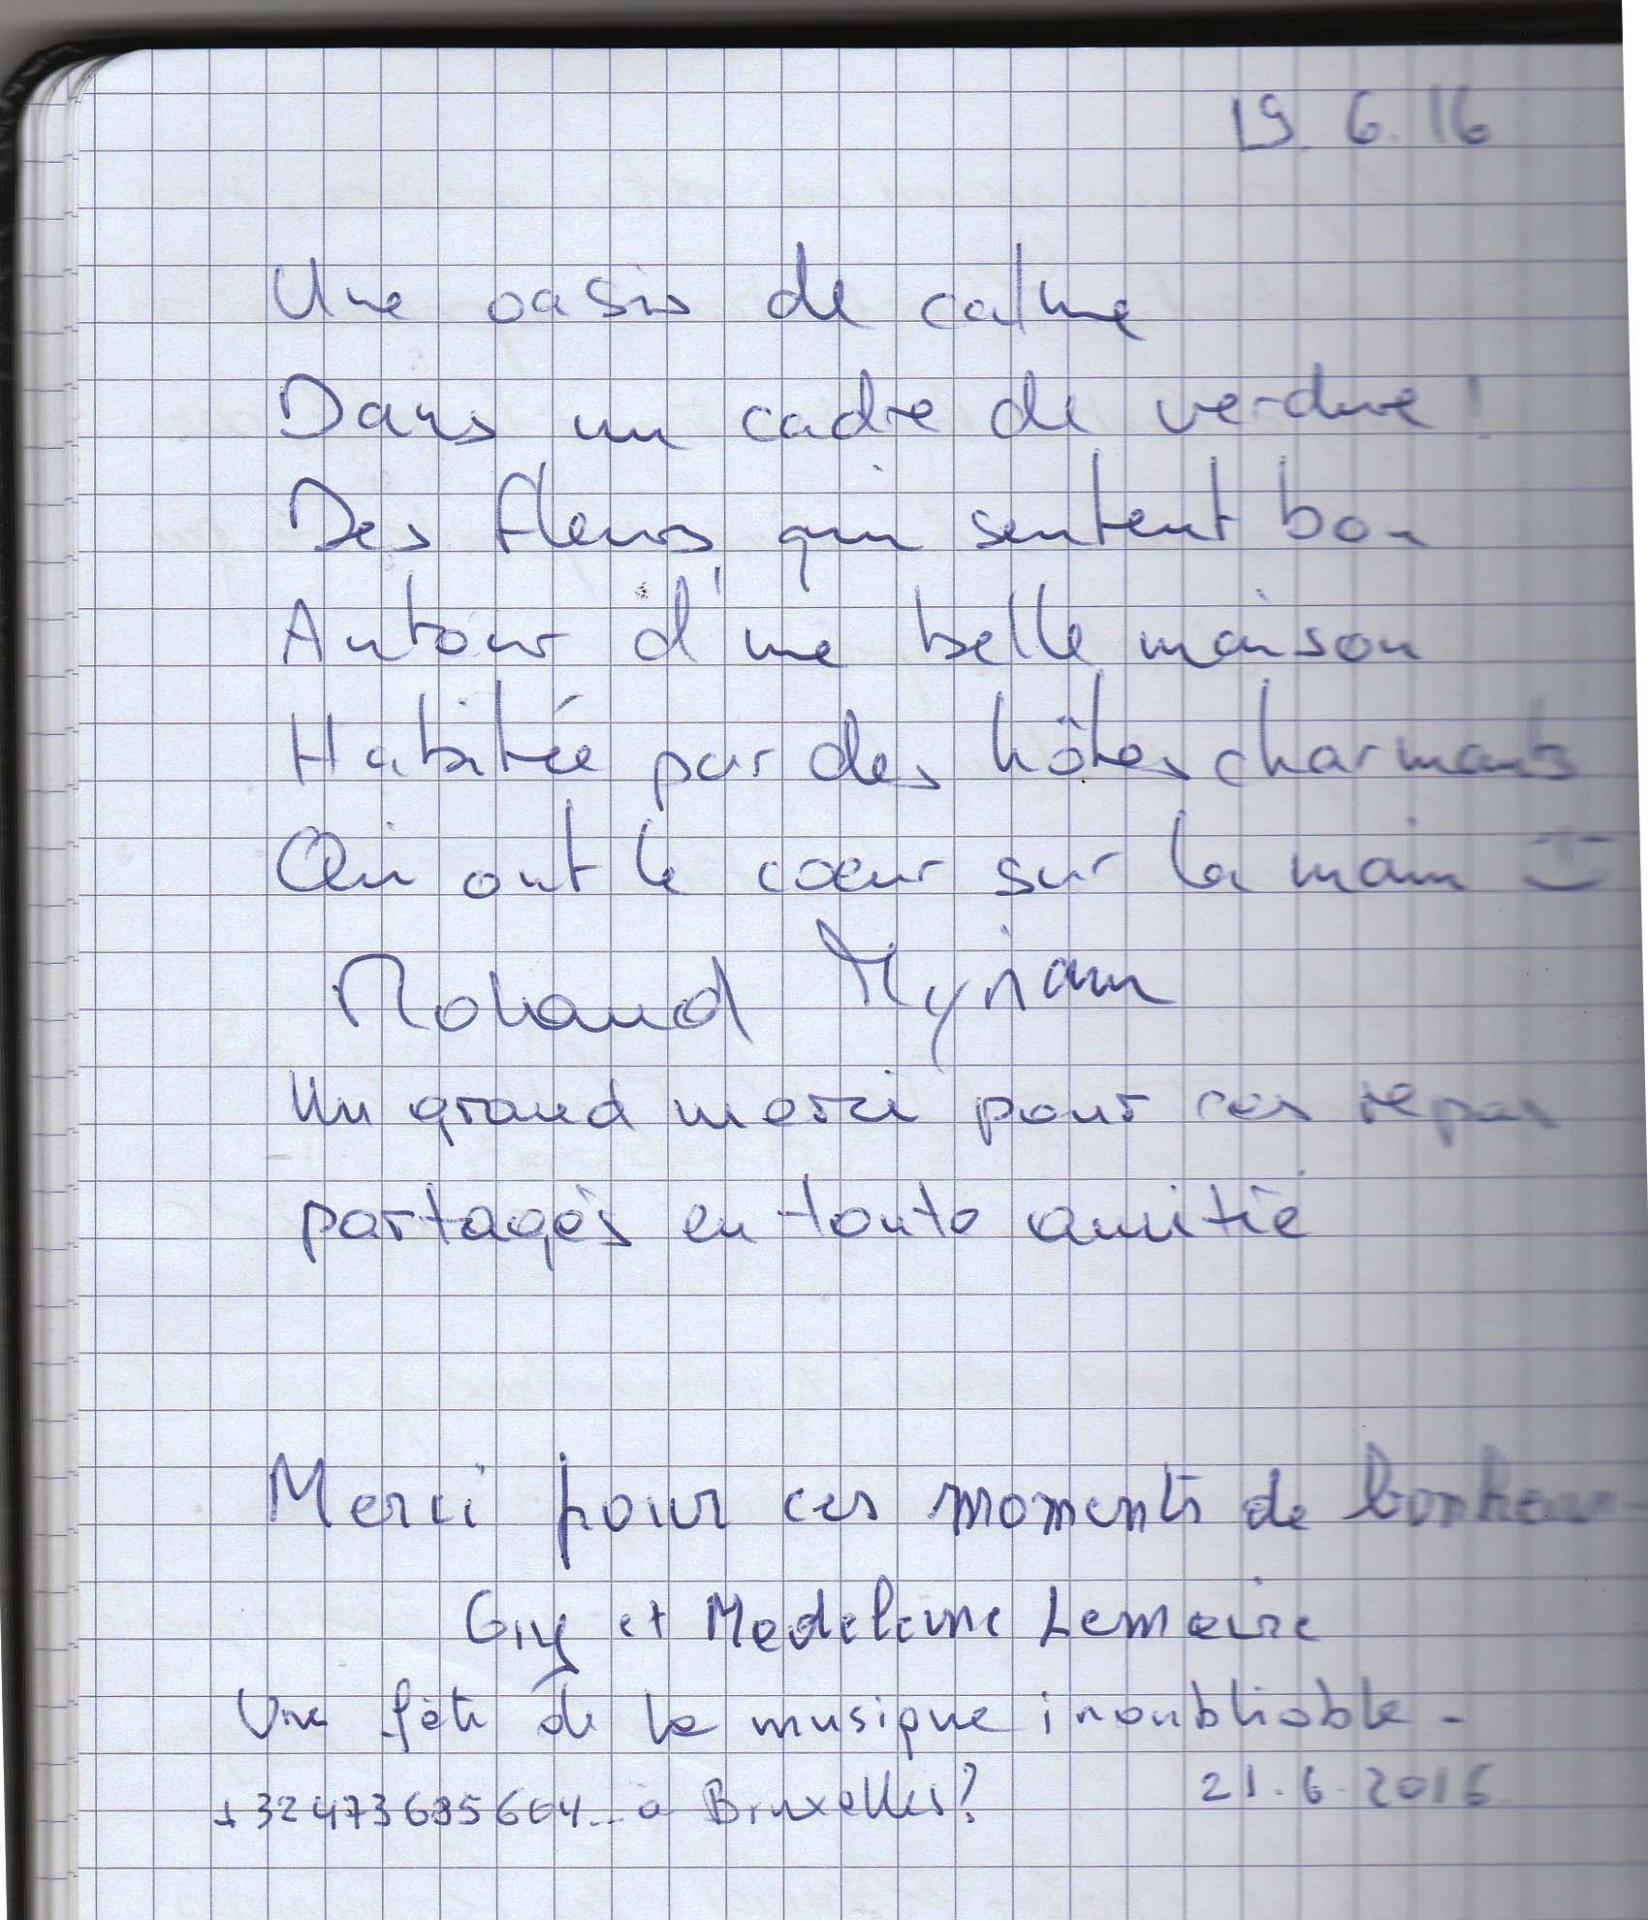 19.6.16
Une oasis de calme
Dans un cadre de verdure !
Des fleurs qui sentent bon
Autour d'une belle maison
Habitée par des hôtes charmants
Qui ont le cœur sur la main :-)
Mohand Myriam
Un grand merci pour ces repas
partagés en toute amitié
Merci pour ces moments de bonheur
Guy et Madeleine Lemaire
Une fête de la musique inoubliable -
... à Bruxelles? 21.6.2016